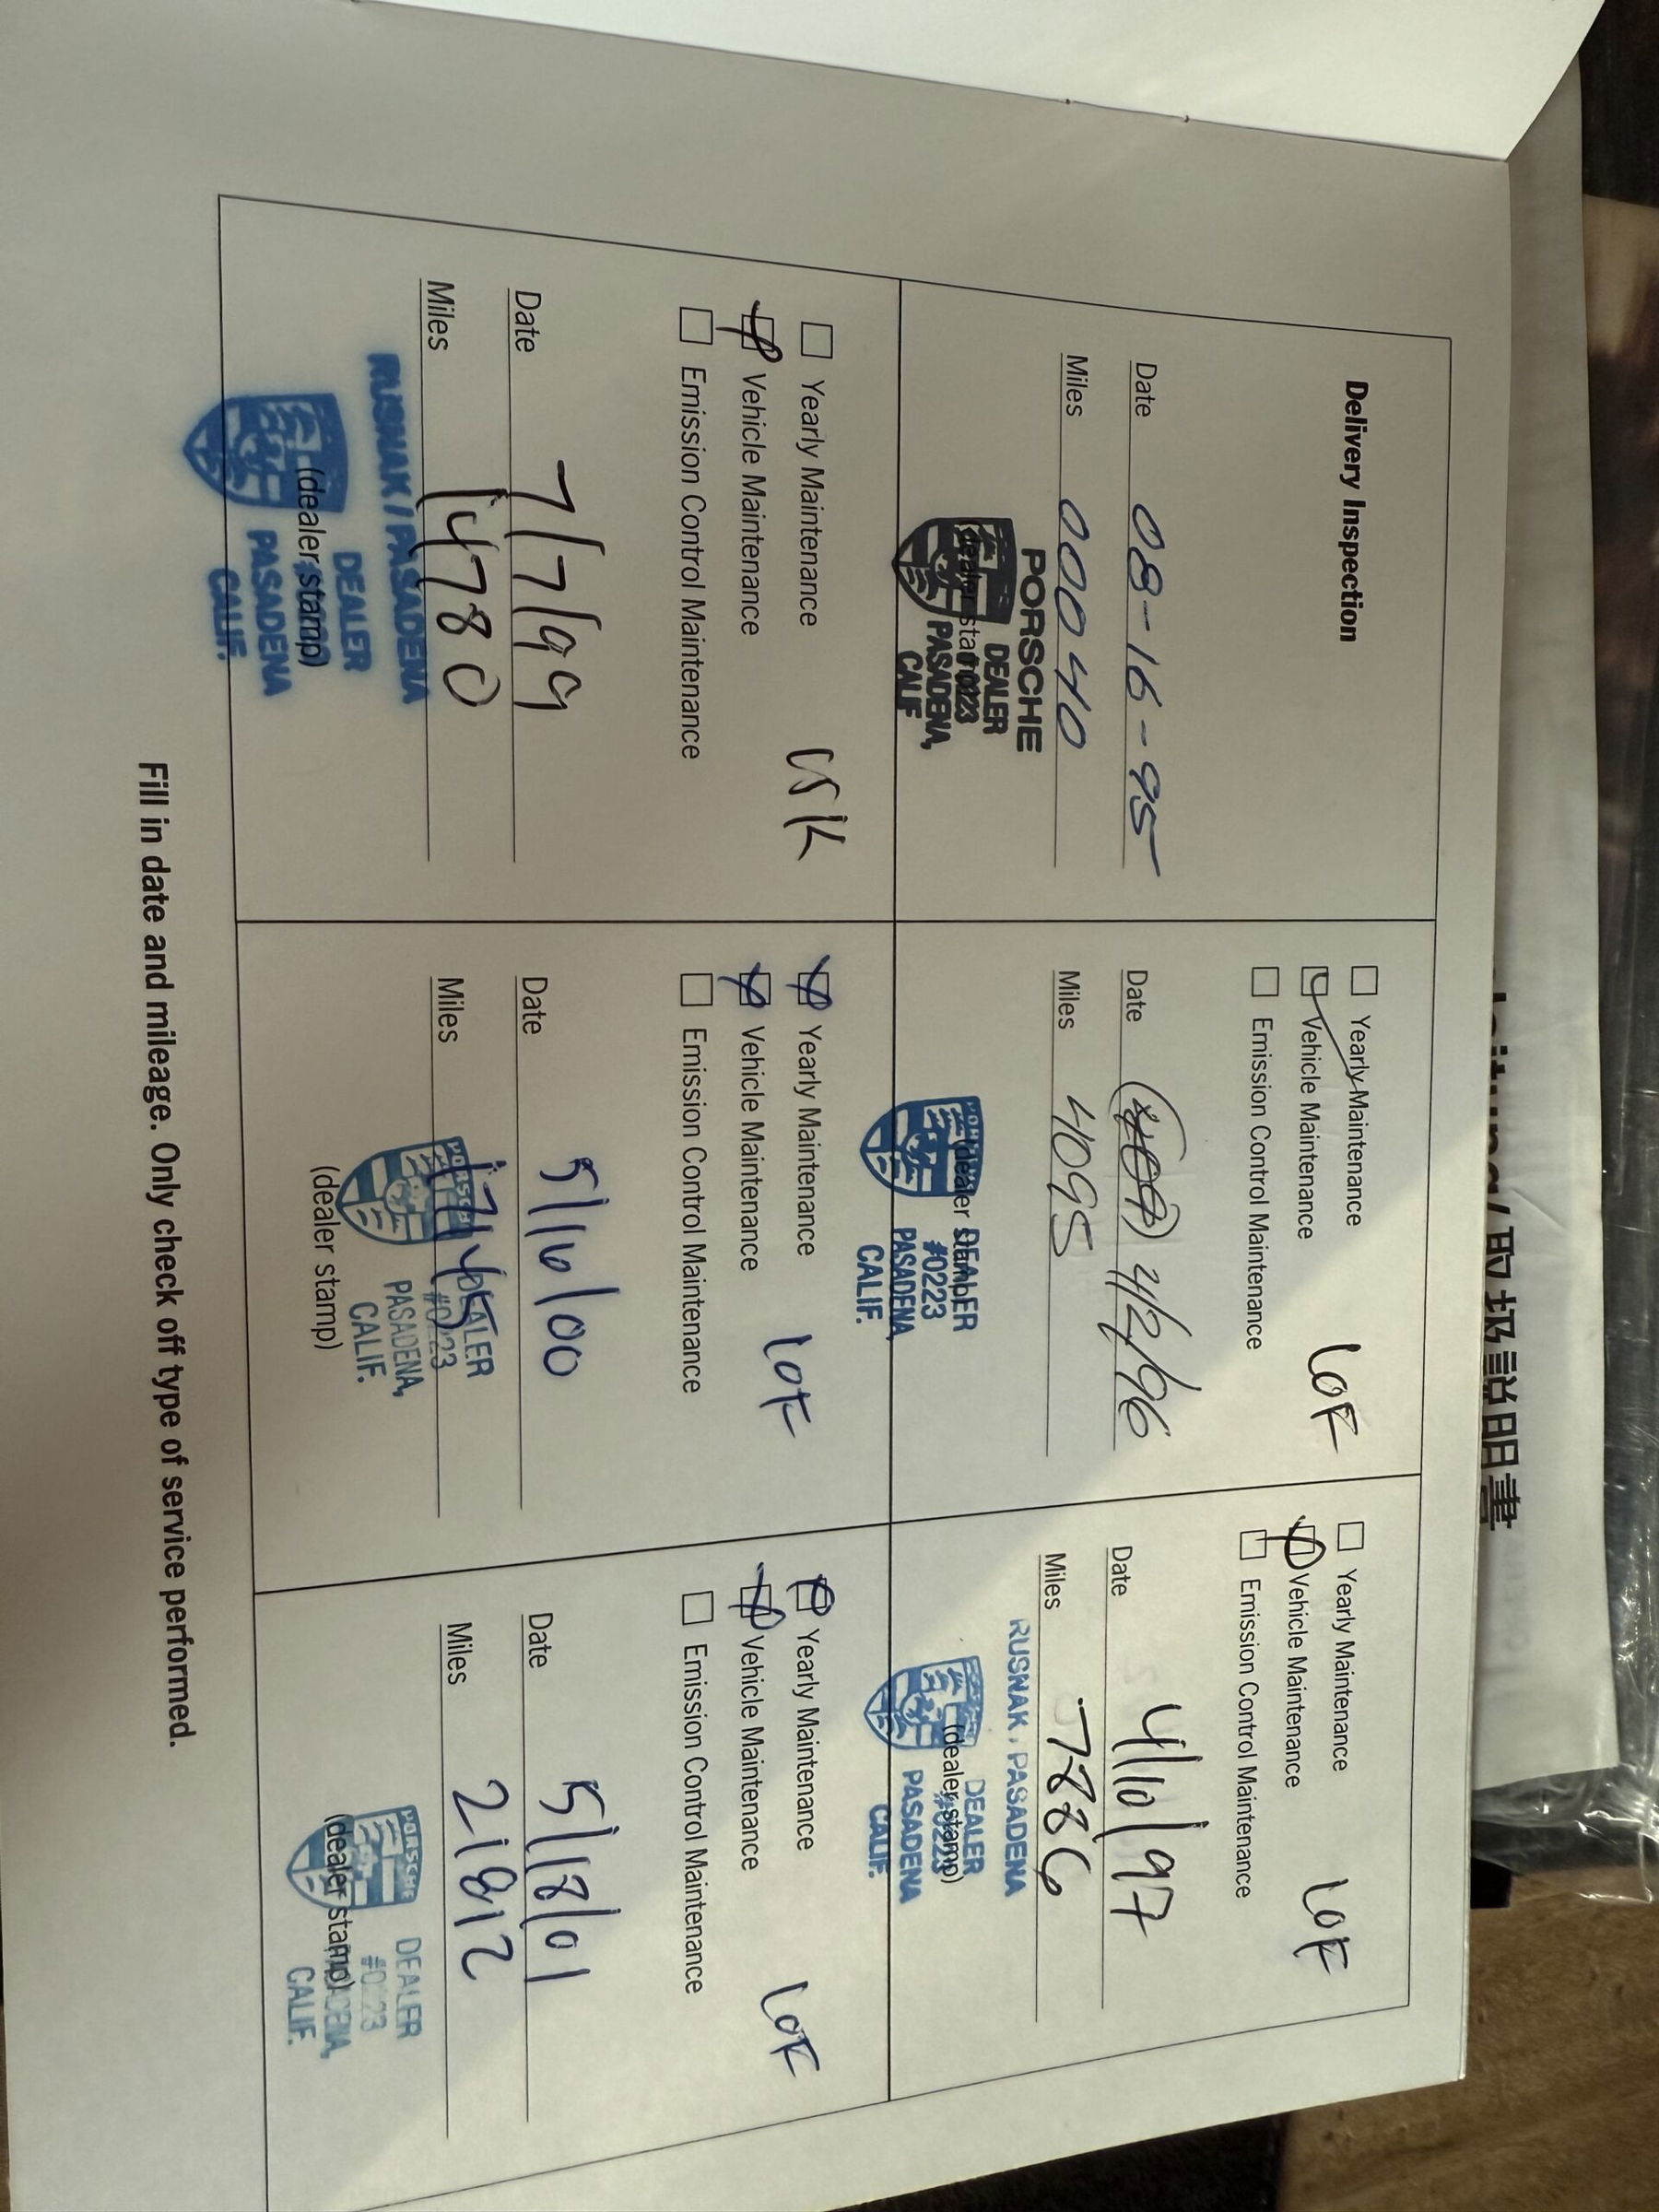 Delivery Inspection
Date 08-16-95
Miles 00040
PORSCHE
DEALER
(dealer stamp)
#0223
PASADENA,
CALIF
Yearly Maintenance
LOF
Vehicle Maintenance
Emission Control Maintenance
Date 4/2/96
Miles 4095
(dealer stamp)
DEALER
#0223
PASADENA,
CALIF.
Yearly Maintenance
LOF
Vehicle Maintenance
Emission Control Maintenance
Date 4/10/97
Miles 7886
RUSNAK / PASADENA
DEALER
(dealer stamp)
#0223
PASADENA
CALIF.
Yearly Maintenance
15K
Vehicle Maintenance
Emission Control Maintenance
Date 7/7/99
Miles 14780
RUSNAK / PASADENA
DEALER
(dealer stamp)
PASADENA
CALIF.
Yearly Maintenance
LOF
Vehicle Maintenance
Emission Control Maintenance
Date 5/16/00
Miles
PORSCHE
DEALER
#0223
PASADENA,
CALIF.
(dealer stamp)
Yearly Maintenance
LOF
Vehicle Maintenance
Emission Control Maintenance
Date 5/18/01
Miles 21812
PORSCHE
DEALER
#0223
(dealer stamp)
PASADENA,
CALIF.
Fill in date and mileage. Only check off type of service performed.
取扱説明書